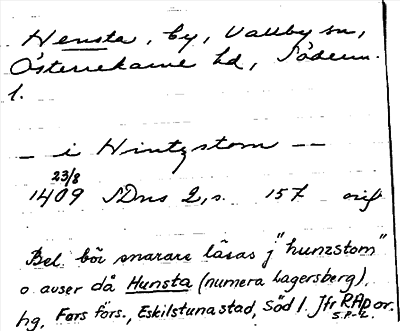 Hensta, by, Vallby sn,
Österrekarne hd, Söderm.
l.
— i Hintzstom — —
23/8
1409 SDns 2, s. 157 orig
Bel. bör snarare läsas j "hunzstom"
o avser då Hunsta (numera Lagersberg),
hg, Fors förs., Eskilstuna stad, Söd l. Jfr RAp or.
S.P-L.